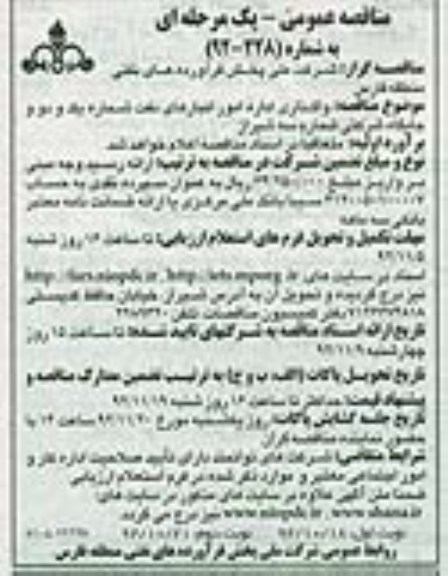 مناقصه عمومی - یک مرحله ای
به شماره (۲۲۸-۹۲)
مناقصه گزار: شرکت ملی پخش فرآورده های نفتی
منطقه فارس
موضوع مناقصه: واگذاری اداره امور انبارهای نفت شماره یک و دو و
جایگاه شرکتی شماره سه شیراز
برآورد اولیه: متعاقبا در اسناد مناقصه اعلام خواهد شد
نوع و مبلغ تضمین شرکت در مناقصه به ترتیب: ارائه رسید وجه مبنی
بر واریز مبلغ ریال به عنوان سپرده نقدی به حساب
سیبا بانک ملی مرکزی یا ارائه ضمانت نامه معتبر
بانکی سه ماهه
مهلت تکمیل و تحویل فرم های استعلام ارزیابی: تا ساعت ۱۶ روز شنبه
اسناد در سایت های http://fars.niopdc.ir , http://iets.mporg.ir
نیز درج گردیده و تحویل آن به آدرس شیراز، خیابان حافظ
دفتر کمیسیون مناقصات تلفن
تاریخ ارائه اسناد مناقصه به شرکتهای تایید شده: تا ساعت ۱۵ روز
چهارشنبه
تاریخ تحویل پاکات (الف، ب و ج) به ترتیب تضمین مدارک مناقصه و
پیشنهاد قیمت: حداکثر تا ساعت ۱۶ روز شنبه ۹۲/۱۱/۱۹
تاریخ جلسه گشایش پاکات: روز یکشنبه مورخ ۹۲/۱۱/۲۰ ساعت ۱۴ با
حضور نماینده مناقصه گران
شرایط متقاضی: شرکت های توانمند دارای تأیید صلاحیت اداره کار و
امور اجتماعی معتبر و موارد ذکر شده در فرم استعلام ارزیابی
ضمنا متن آگهی علاوه بر سایت های مذکور در سایت های
www.niopdc.ir , www.shana.ir نیز درج می گردد.
نوبت اول: ۹۲/۱۰/۱۸ نوبت دوم: ۹۲/۱۰/۲۱
روابط عمومی شرکت ملی پخش فرآورده های نفتی منطقه فارس